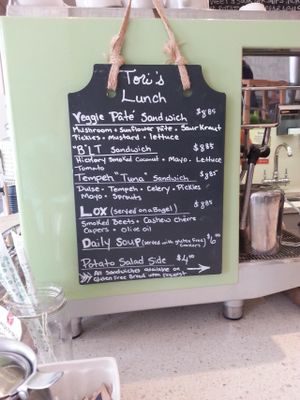 Tori's
Lunch
Veggie Pâté Sandwich $8.85
Mushroom • Sunflower Pâte • Saur Kraut
Pickles • Mustard • lettuce
"B"LT Sandwich $8.85
Hickory Smoked Coconut • Mayo • Lettuce
Tomato
Tempeh "Tuna" Sandwich $8.85
Dulse • Tempeh • Celery • Pickles
Mayo • Sprouts
Lox (served on a Bagel) $8.85
Smoked Beets • Cashew Cheere
Capers • Olive oil
Daily Soup (served with gluten free crackers) $6.00
Potato Salad Side $4.00
All Sandwiches available on
Gluten Free Bread upon request